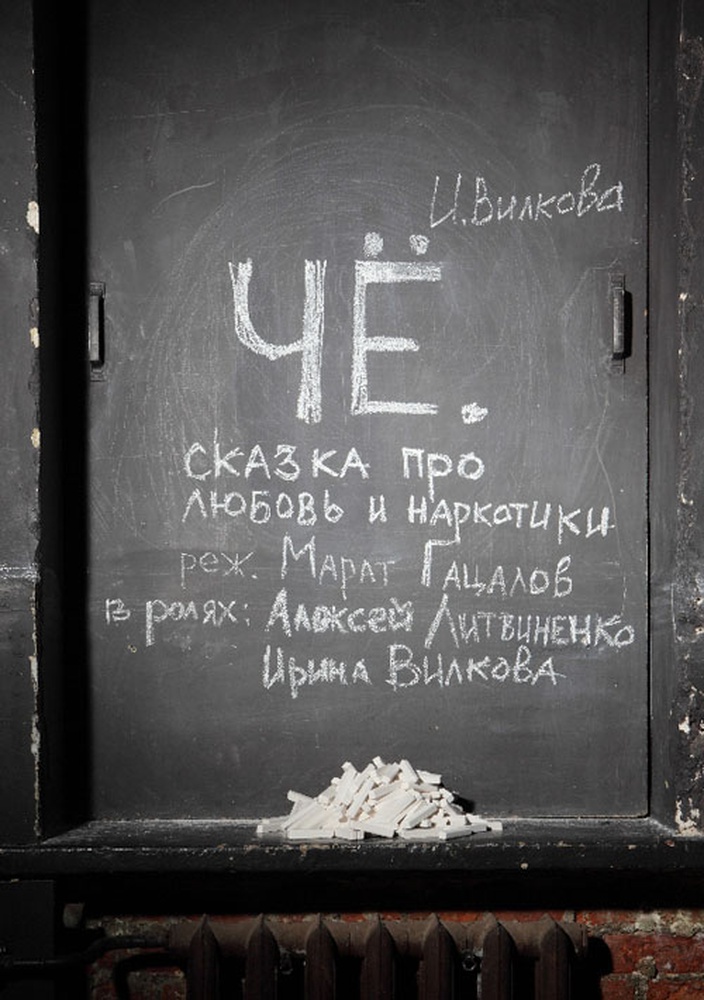 И. Вилкова
ЧЁ.
сказка про
любовь и наркотики
реж. Марат Гацалов
в ролях: Алексей Литвиненко
Ирина Вилкова